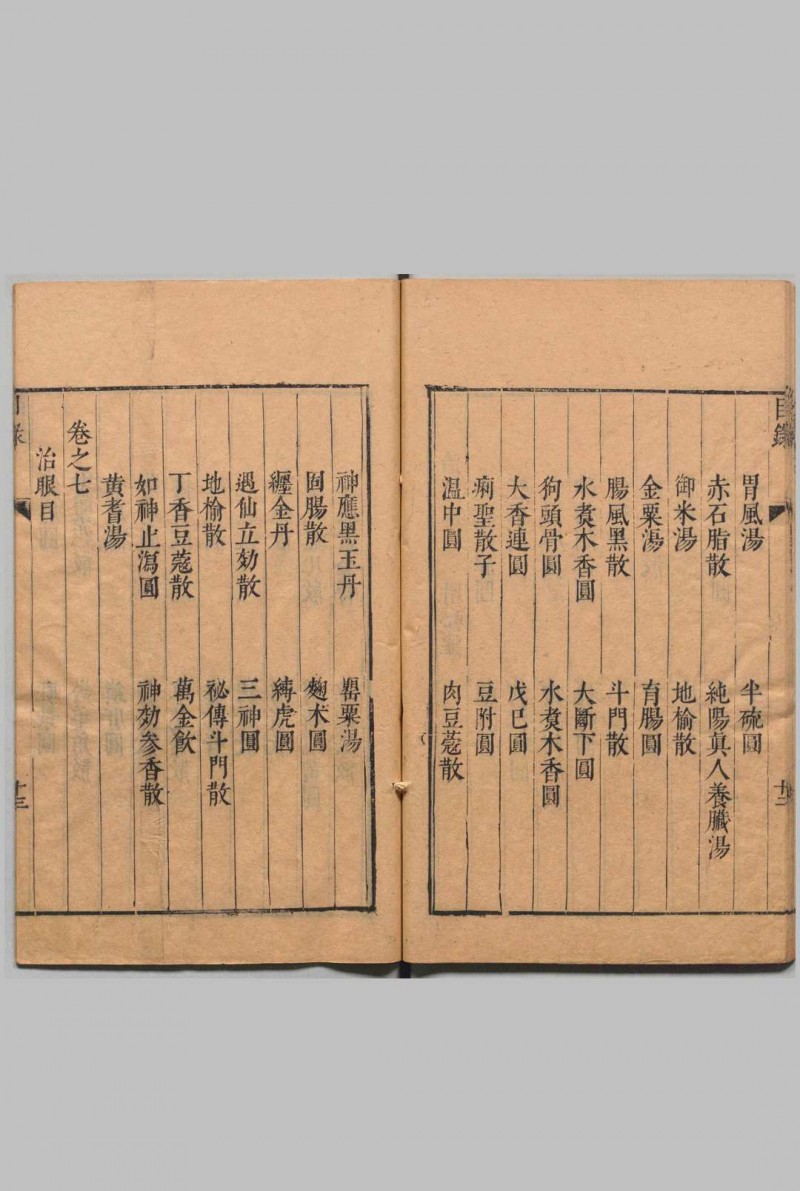 目錄
十二
胃風湯　半硫圓
赤石脂散　純陽真人養臟湯
御米湯　地榆散
金粟湯　育腸圓
腸風黑散　斗門散
水煑木香圓　大斷下圓
狗頭骨圓　水煑木香圓
大香連圓　戊巳圓
痢聖散子　豆附圓
溫中圓　肉豆蔻散
神應黑玉丹　罌粟湯
固腸散　麴朮圓
纏金丹　縛虎圓
遇仙立効散　三神圓
地榆散　祕傳斗門散
丁香豆蔻散　萬金飲
如神止瀉圓　神効參香散
黄耆湯
卷之七
治眼目
目錄
十三